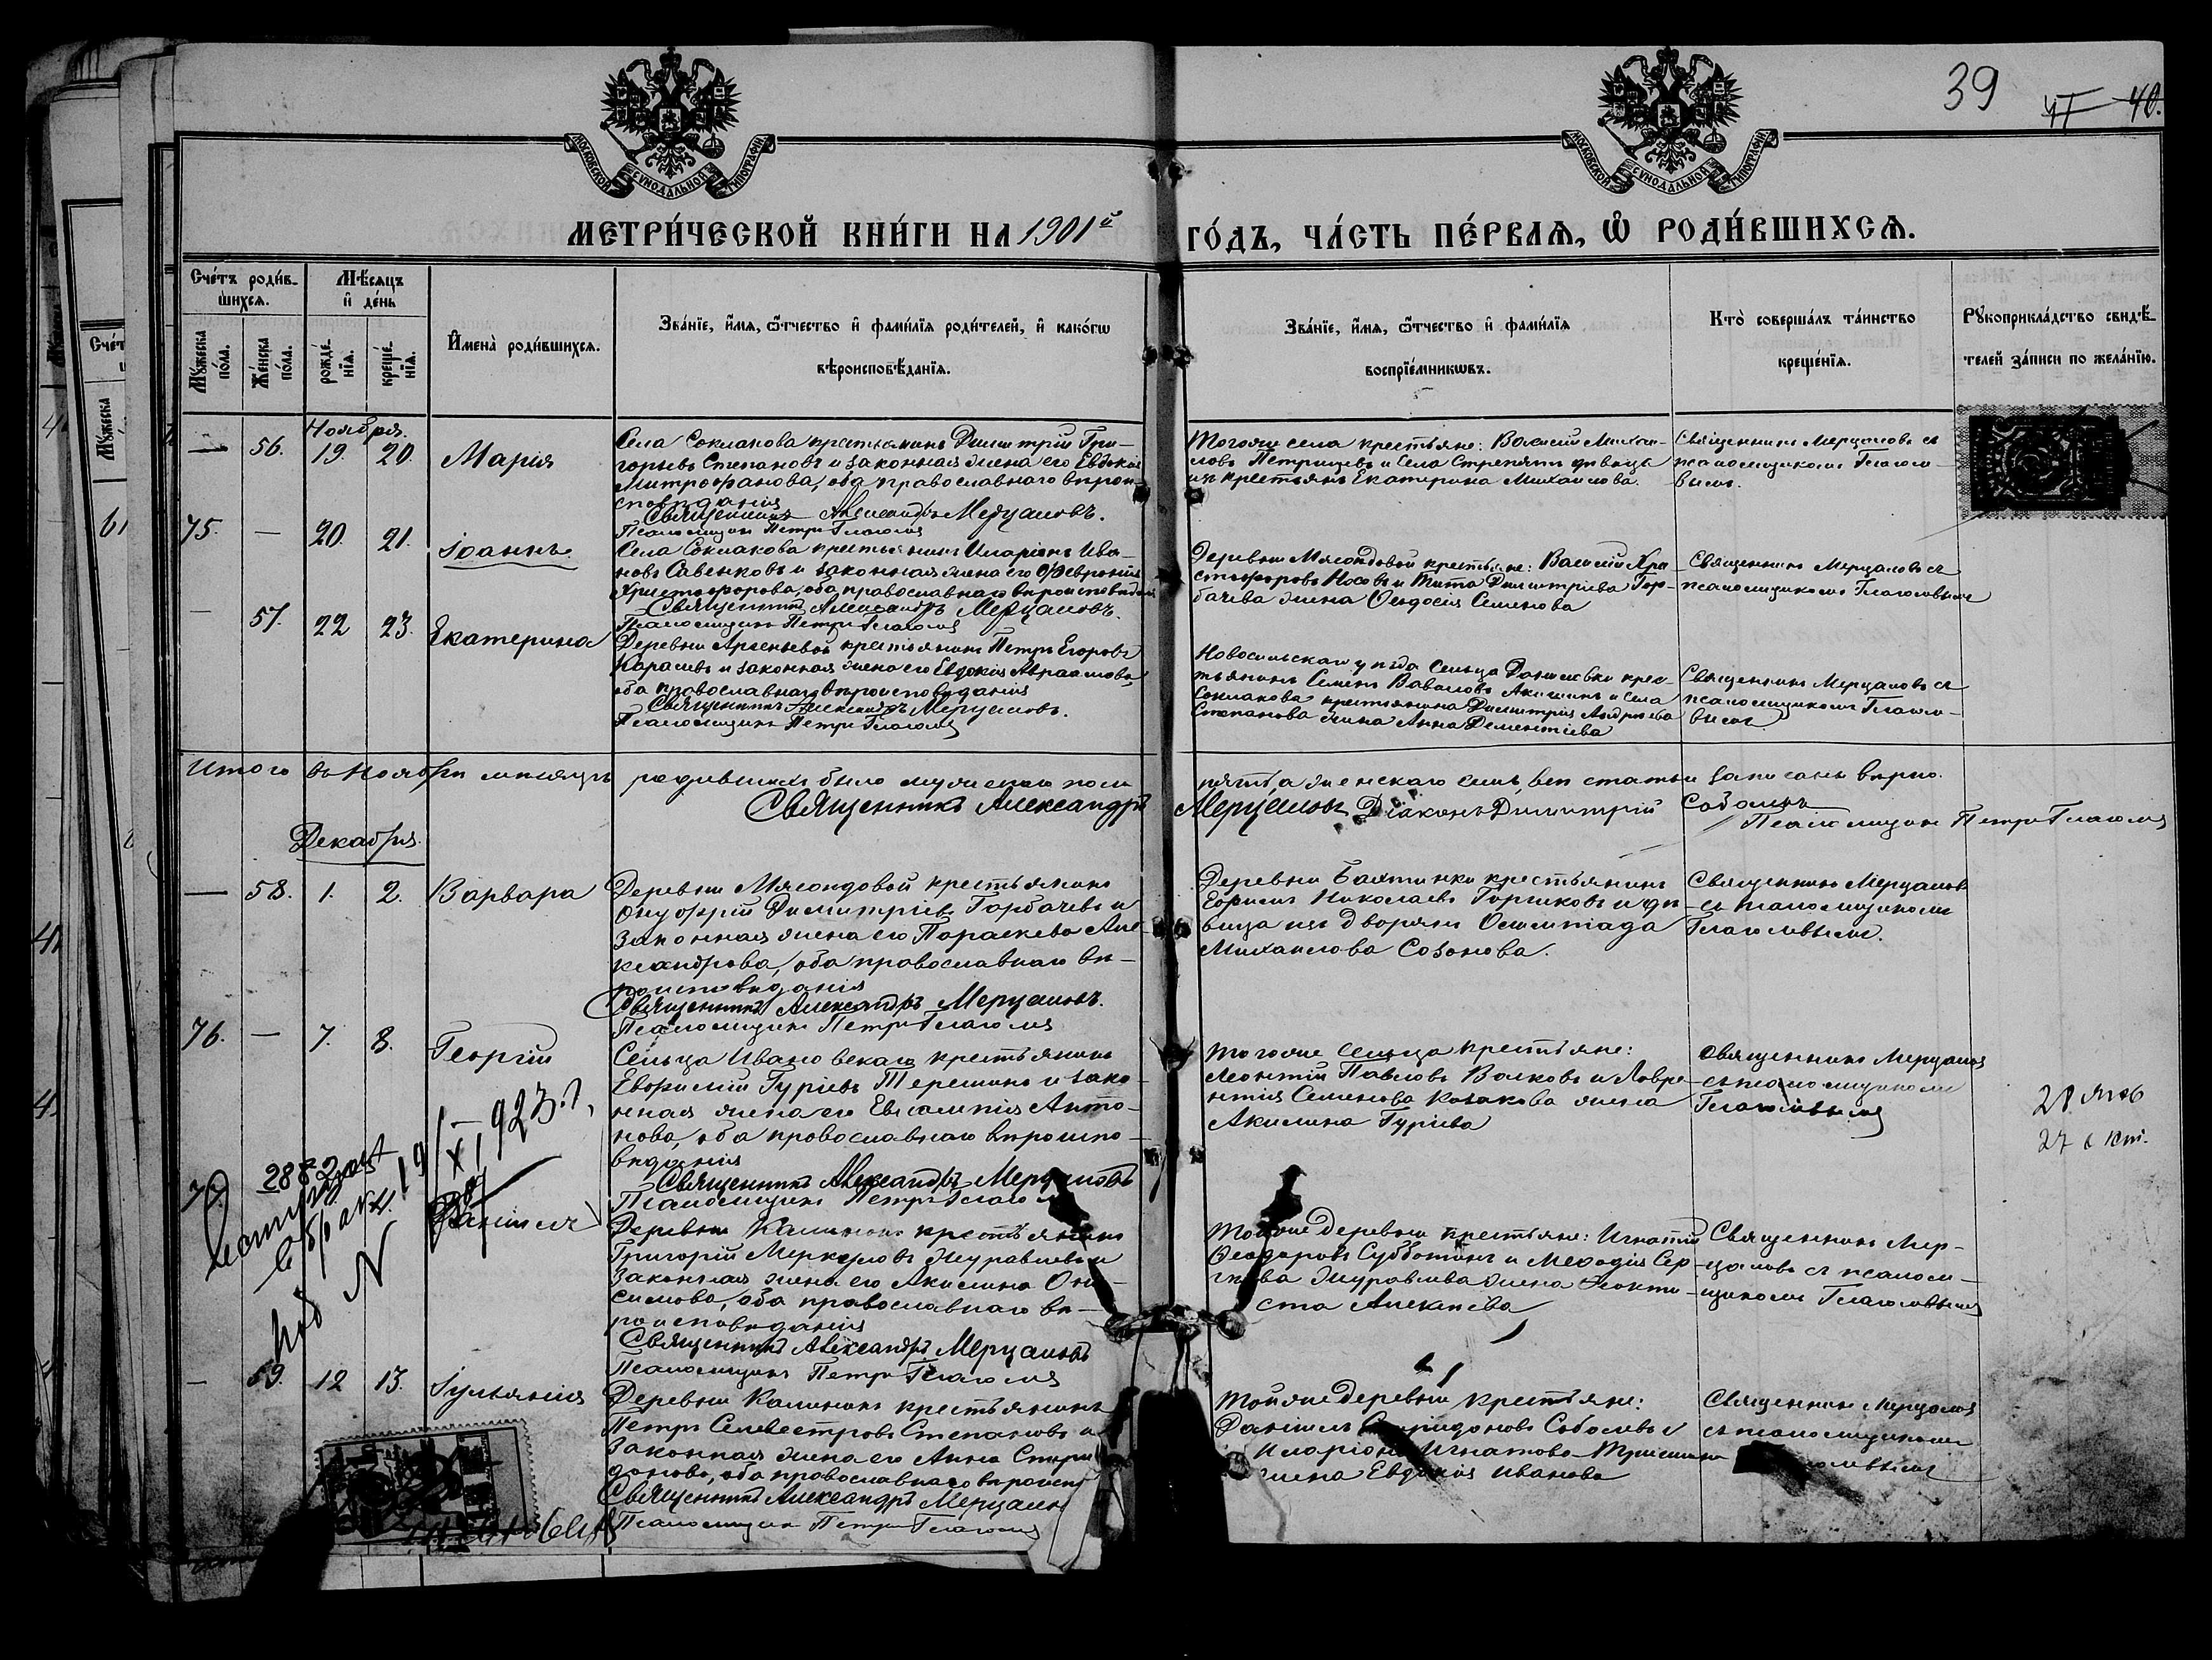 39
40.
МОСКОВСКОЙ СѴНОДАЛЬНОЙ ТИПОГРАФІИ
МОСКОВСКОЙ СѴНОДАЛЬНОЙ ТИПОГРАФІИ
МЕТРИ́ЧЕСКОЙ КНИ́ГИ НА 1901й ГО́ДЪ, ЧА́СТЬ ПЕ́РВАѦ, Ѽ РОДИ́ВШИХСѦ.
Сче́тъ роди́в-
шихсѧ.
Мѣ́сѧцъ
и҆ де́нь
Мꙋ́жеска
по́ла.
Же́нска
по́ла.
рожде́-
нїѧ.
креще́-
нїѧ.
И҆мена̀ роди́вшихсѧ.
Зва́нїе, и҆́мѧ, ѻ҆́тчество и҆ фами́лїѧ роди́телей, и҆ како́гѡ
вѣроисповѣ́данїѧ.
Зва́нїе, и҆́мѧ, ѻ҆́тчество и҆ фами́лїѧ
воспрїе́мникѡвъ.
Кто̀ соверша́лъ та́инство
креще́нїѧ.
Рꙋкоприкла́дство свидѣ́-
телей за́писи по жела́нїю.
Ноября.
— 56. 19. 20. Марія
Села Соклакова крестьянинъ Димитрій Гри-
горьевъ Степановъ и законная жена его Евдокія
Митрофанова, оба православнаго вѣрои-
сповѣданія
Священникъ Александръ Мерцаловъ.
Псаломщикъ Петръ Глаголевъ
Тогоже села крестьяне: Василій Михаи-
ловъ Петрищевъ и села дѣвица
изъ крестьянъ Екатерина Михаилова.
Священникъ Мерцаловъ съ
псаломщикомъ Глаголе-
вымъ.
75. — 20. 21. Іоаннъ
Села Соклакова крестьянинъ Иларіонъ Ива-
новъ Савенковъ и законная жена его Февронія
Христофорова, оба православнаго вѣроисповѣданія
Священникъ Александръ Мерцаловъ.
Псаломщикъ Петръ Глаголевъ
Деревни Мясоѣдовой крестьяне: Василій Хри-
стофоровъ Носовъ и Тита Димитріева Гор-
бачева жена Ѳеодосія Семенова
Священникъ Мерцаловъ съ
псаломщикомъ Глаголевымъ
— 57. 22 23. Екатерина
Деревни Арсеньевой крестьянинъ Петръ Егоровъ
Карасевъ и законная жена его Евдокія Авраамова,
оба православнаго вѣроисповѣданія
Священникъ Александръ Мерцаловъ.
Псаломщикъ Петръ Глаголевъ
Новосильскаго уѣзда сельца крес-
тьянинъ Семенъ Вавиловъ и села
Соклакова крестьянина Димитрія Андреева
Степанова жена Анна Дементіева
Священникъ Мерцаловъ съ
псаломщикомъ Глаголе-
вымъ
Итого въ Ноябрѣ мѣсяцѣ родившихся было мужескаго пола пять, а женскаго семь, всѣ статьи записаны вѣрно.
Священникъ Александръ Мерцаловъ Діаконъ Димитрій
Псаломщикъ Петръ Глаголевъ
Декабря.
— 58. 1. 2. Варвара
Деревни Мясоѣдовой крестьянинъ
Онуфрій Димитріевъ Горбачевъ и
законная жена его Параскева Але-
ксандрова, оба православнаго вѣ-
роисповѣданія
Священникъ Александръ Мерцаловъ.
Псаломщикъ Петръ Глаголевъ
Деревни крестьянинъ
Николаевъ Горшковъ и дѣ-
вица изъ дворянъ Олимпіада
Михаилова Созонова.
Священникъ Мерцаловъ
съ псаломщикомъ
Глаголевымъ.
76. — 7. 8. Георгій
Сельца Ивановскаго крестьянинъ
Евфимій Гуріевъ Терешинъ и зако-
нная жена его Евлампія Анто-
нова, оба православнаго вѣроиспо-
вѣданія
Священникъ Александръ Мерцаловъ
Псаломщикъ Петръ Глаголевъ
Тогоже сельца крестьяне:
Леонтій Павловъ Волковъ и Лавре-
нтія Семенова Козакова жена
Акилина Гуріева
Священникъ Мерцаловъ
съ псаломщикомъ
Глаголевымъ
2882
19/XI 923 г.
под N
Даніилъ
Деревни Калинокъ крестьянинъ
Григорій Меркуловъ Журавлевъ и
законная жена его Акилина Они-
симова, оба православнаго вѣ-
роисповѣданія
Священникъ Александръ Мерцаловъ
Псаломщикъ Петръ Глаголевъ
Тойже деревни крестьяне: Игнатій
Ѳеодоровъ Субботинъ и Меѳодія Сер-
гѣева Журавлева жена Ѳеокти-
ста Алексѣева
Священникъ Мер-
цаловъ съ псалом-
щикомъ Глаголевымъ
27 окт.
— 59. 12 13. Іуліанія
Деревни Калинокъ крестьянинъ
Петръ Селевестровъ Степановъ и
законная жена его Анна Спири-
донова, оба православнаго вѣроисп
Священникъ Александръ Мерцаловъ
Псаломщикъ Петръ Глаголевъ
Тойже деревни крестьяне:
Даніилъ Спиридоновъ Соболевъ и
Иларіона Игнатова
жена Евдокія Иванова
Священникъ Мерцаловъ
съ псаломщикомъ